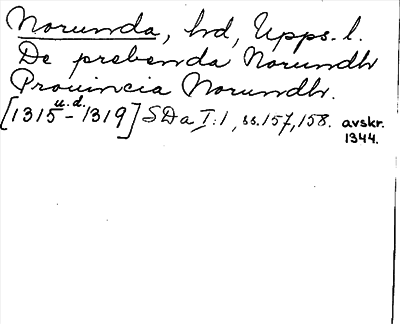 Norunda, hd, Upps. l.
De prebenda Norundh
Prouincia Norundh.
[1315 u.d. - 1319] SDa I:1, ss. 157, 158. avskr. 1344.